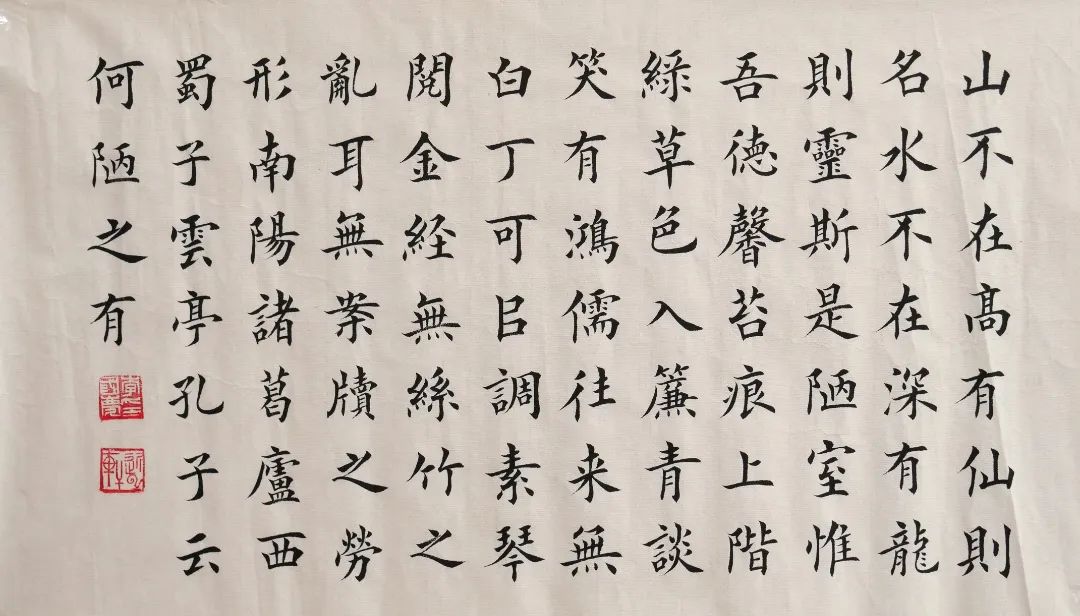 山不在髙有仙則
名水不在深有龍
則靈斯是陋室惟
吾徳馨苔痕上階
綠草色入簾青談
笑有鴻儒往来無
白丁可㠯調素琴
閱金経無絲竹之
亂耳無案牘之勞
形南陽諸葛廬西
蜀子雲亭孔子云
何陋之有